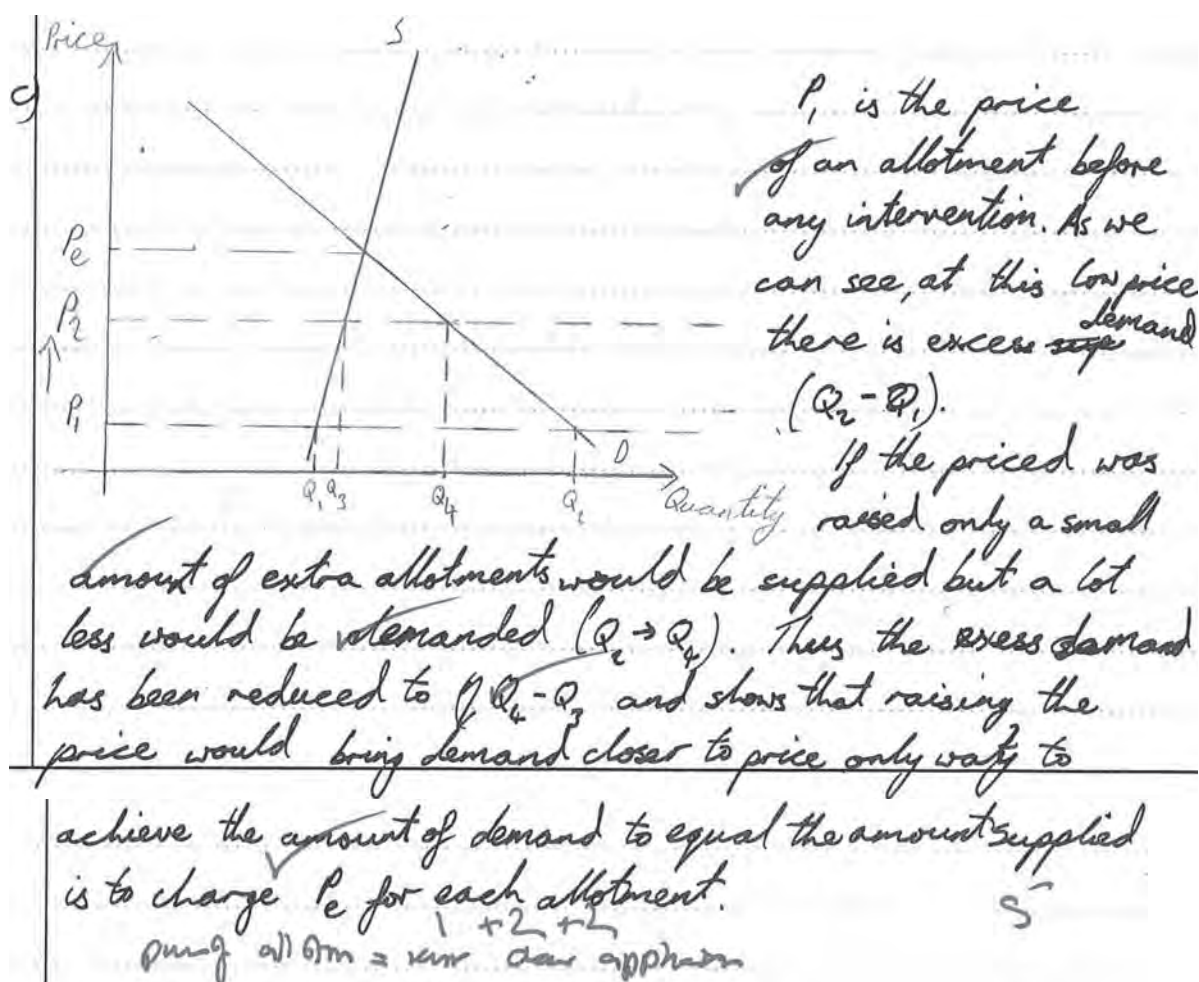 Price S
g)
Pe
P2
P1
D
Q1 Q3 Q4 Q2 Quantity
P1 is the price
of an allotment before
any intervention. As we
can see, at this low price
there is excess demand
(Q2 - Q1).
If the priced was
raised only a small
amount of extra allotments would be supplied but a lot
less would be demanded (Q2 → Q4). Thus the exess demand
has been reduced to Q4 - Q3 and shows that raising the
price would bring demand closer to price only way to
achieve the amount of demand to equal the amount supplied
is to charge Pe for each allotment.
1 + 2 + 2
5